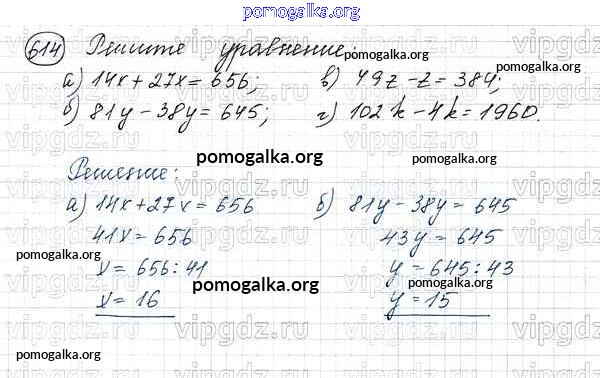 pomogalka.org
614 Решите уравнение:
а) 14x + 27x = 656; в) 49z - z = 384;
б) 81y - 38y = 645; г) 102k - 4k = 1960.
Решение:
а) 14x + 27x = 656 б) 81y - 38y = 645
41x = 656 43y = 645
x = 656 : 41 y = 645 : 43
x = 16 y = 15
pomogalka.org
pomogalka.org
pomogalka.org
pomogalka.org
pomogalka.org
pomogalka.org
pomogalka.org
pomogalka.org
pomogalka.org
vipgdz.ru
vipgdz.ru
vipgdz.ru